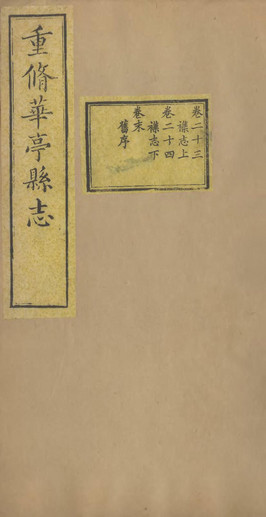 重脩華亭縣志
卷二十三
襍志上
卷二十四
襍志下
卷末
舊序